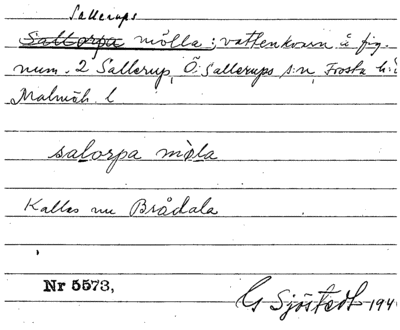 Sallerups
Sallorpa mölla; vattenkvarn å fig.
num. 2 Sallerup, Ö. Sallerups s:n, Frosta h:d
Malmöh. l
salorpa möla
Kallas nu Brådala
Nr 5573,
G Sjöstedt 194